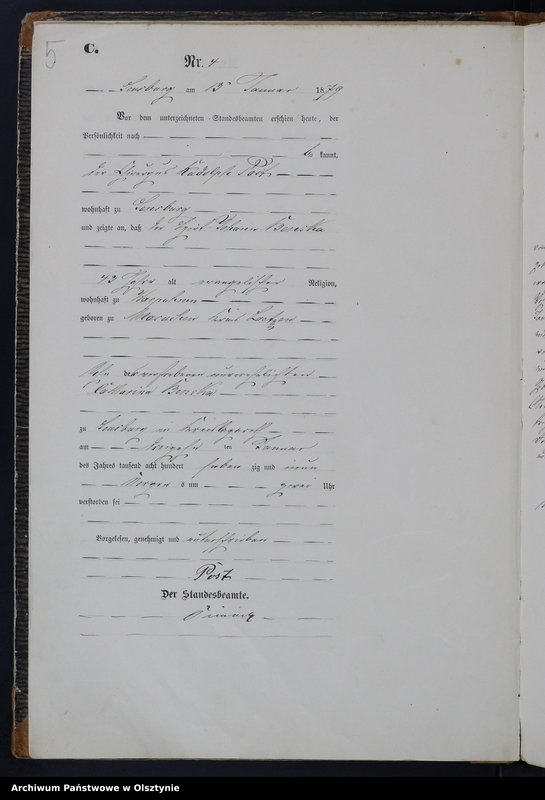 5
C.
Nr. 4
Sensburg am 13 Januar 1879
Vor dem unterzeichneten Standesbeamten erschien heute, der
Persönlichkeit nach
be kannt,
der Rudolph Post
wohnhaft zu Sensburg
und zeigte an, daß der Johann
43 Jahre alt evangelischer Religion,
wohnhaft zu
geboren zu Kreis Loetzen
Sohn der verstorbenen unverehelichten
Catharina
zu Sensburg im
am im Januar
des Jahres tausend acht hundert sieben zig und neun
Morgens um zwei Uhr
verstorben sei
Vorgelesen, genehmigt und unterschrieben
Post
Der Standesbeamte.
Archiwum Państwowe w Olsztynie